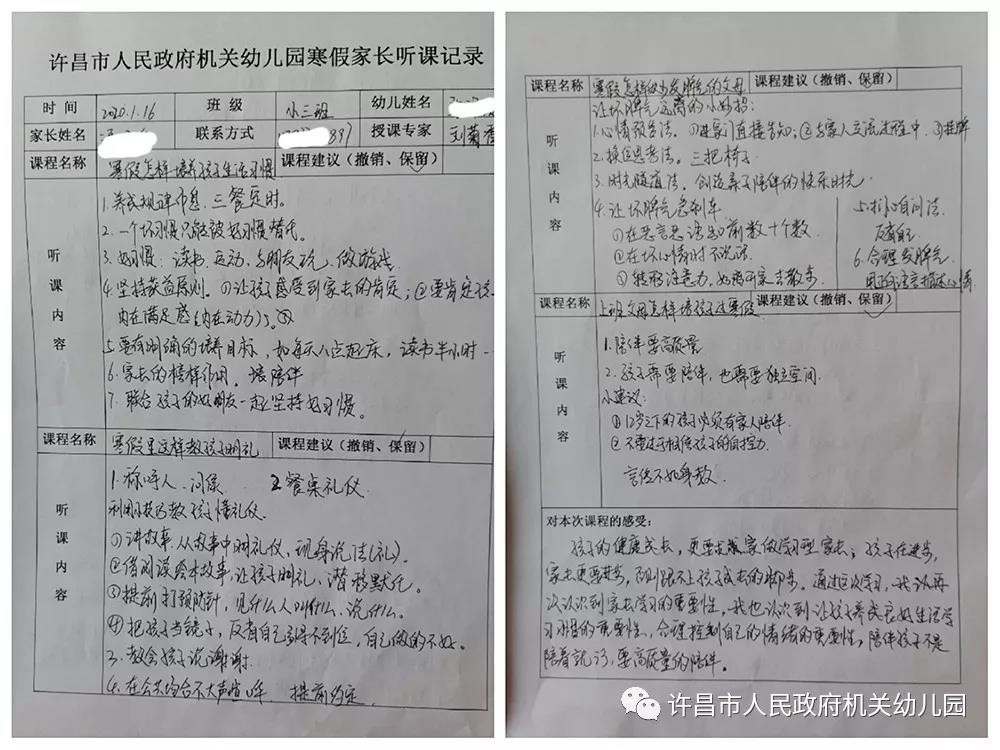 许昌市人民政府机关幼儿园寒假家长听课记录
时间 2020.1.16 班级 小三班 幼儿姓名
家长姓名 联系方式 897 授课专家 刘菊香
课程名称 寒假怎样培养孩子生活习惯 课程建议（撤销、保留）
听课内容
1.养成规律作息，三餐定时。
2.一个坏习惯只能被好习惯替代。
3.好习惯：读书、运动、与朋友玩、做游戏
4.坚持获益原则。①让孩子感受到家长的肯定；②要肯定孩
内在满足感（内在动力）。
5.要有明确的培养目标，如每天八点起床，读书半小时
6.家长的榜样作用，陪伴
7.联合孩子的好朋友一起坚持好习惯。
课程名称 寒假里这样教孩子明礼 课程建议（撤销、保留）
听课内容
1.称呼人、问候 2.餐桌礼仪
利用技巧教孩子懂礼仪
①讲故事，从故事中明礼仪、现身说法（礼）。
②借阅读绘本故事，让孩子明礼、潜移默化。
③提前打预防针，见什么人叫什么、说什么。
④把孩子当镜子，反省自己引导不到位，自己做的不好。
3.教会孩子说谢谢
4.在公共场合不大声喧哗，提前约定
课程名称 寒假怎样做少发脾气的父母 课程建议（撤销、保留）
听课内容
让坏脾气远离的小妙招：
1.心情预告法。①进家门直接告知；②与家人交流过程中 ③挂牌
2.换位思考法。三把椅子
3.时光隧道法。创造亲子陪伴的快乐时光
4.让坏脾气急刹车
①在恶言恶语出口前数十个数
②在坏心情时不说话
③转移注意力，如离开家去散步
5.扪心自问法
反省自己
6.合理发脾气
用语言描述心情
课程名称 上班父母怎样陪孩子过寒假 课程建议（撤销、保留）
听课内容
1.陪伴要高质量
2.孩子需要陪伴，也需要独立空间.
小建议：
①12岁之下的孩子必须有家人陪伴.
②不要过于相信孩子的自控力
言传不如身教.
对本次课程的感受：
孩子的健康成长，更要求家做学习型家长；孩子在进步，
家长更要进步，否则跟不上孩子成长的脚步。通过这次学习，我认再
次认识到家长学习的重要性，我也认识到让孩子养成良好生活学
习习惯的重要性、合理控制自己的情绪的重要性，陪伴孩子不是
陪着就行，要高质量的陪伴。
许昌市人民政府机关幼儿园